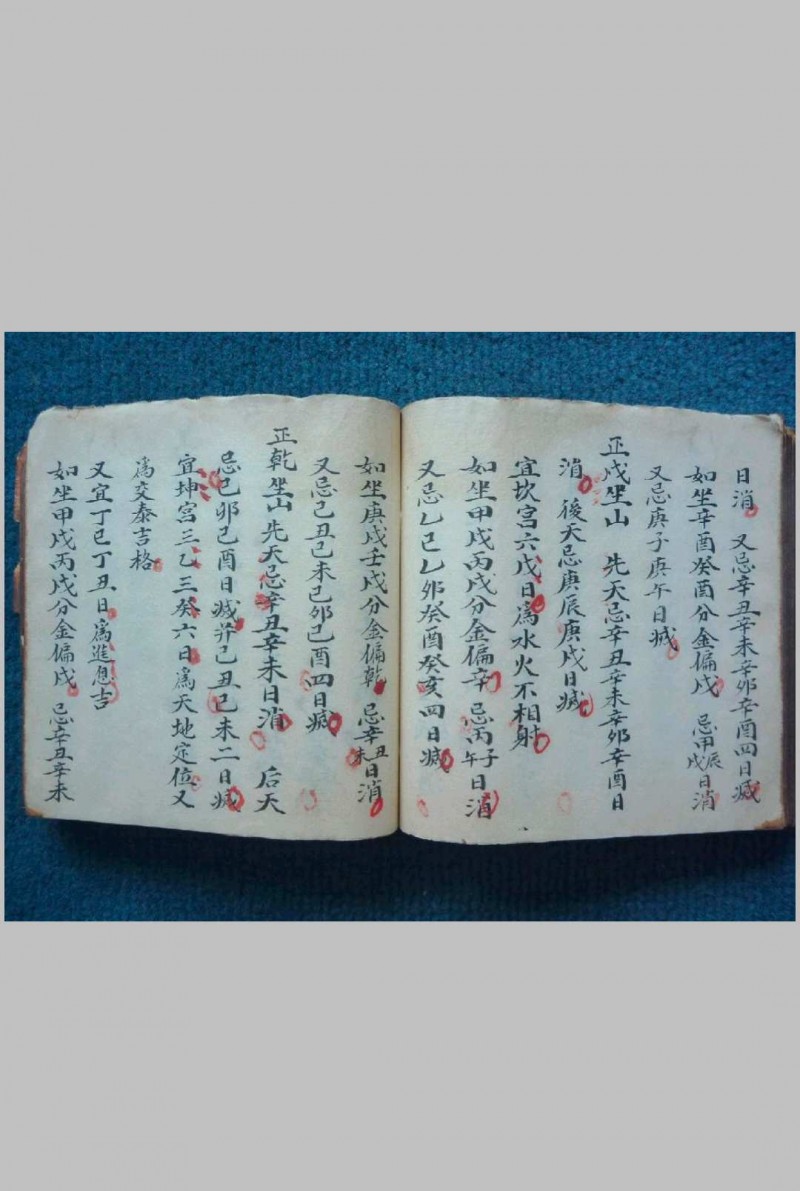 日消 又忌辛丑辛未辛卯辛酉四日滅
如坐辛酉癸酉分金偏戍 忌甲辰戌日消
又忌庚子庚午日滅
正戍坐山 先天忌辛丑辛未辛卯辛酉日
消 後天忌庚辰庚戍日滅
宜坎宫六戊日爲水火不相射
如坐甲戍丙戍分金偏辛 忌丙子午日消
又忌乙巳乙卯癸酉癸亥四日滅
如坐庚戍壬戍分金偏乾 忌辛丑未日消
又忌己丑己未己卯己酉四日滅
正乾坐山先天忌辛丑辛未日消 后天
忌己卯己酉日滅并己丑己未二日滅
宜坤宫三乙三癸六日爲天地定位又
爲交泰吉格
又宜丁巳丁丑日爲進息吉
如坐甲戍丙戍分金偏戍 忌辛丑辛未